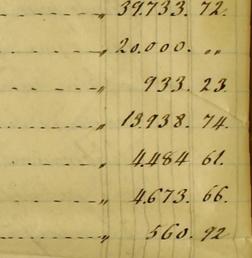 „ 39.733. 72.
„ 20.000. „
„ 933. 23
„ 13.938. 74.
„ 4.484 61.
„ 4.673. 66.
„ 560. 92